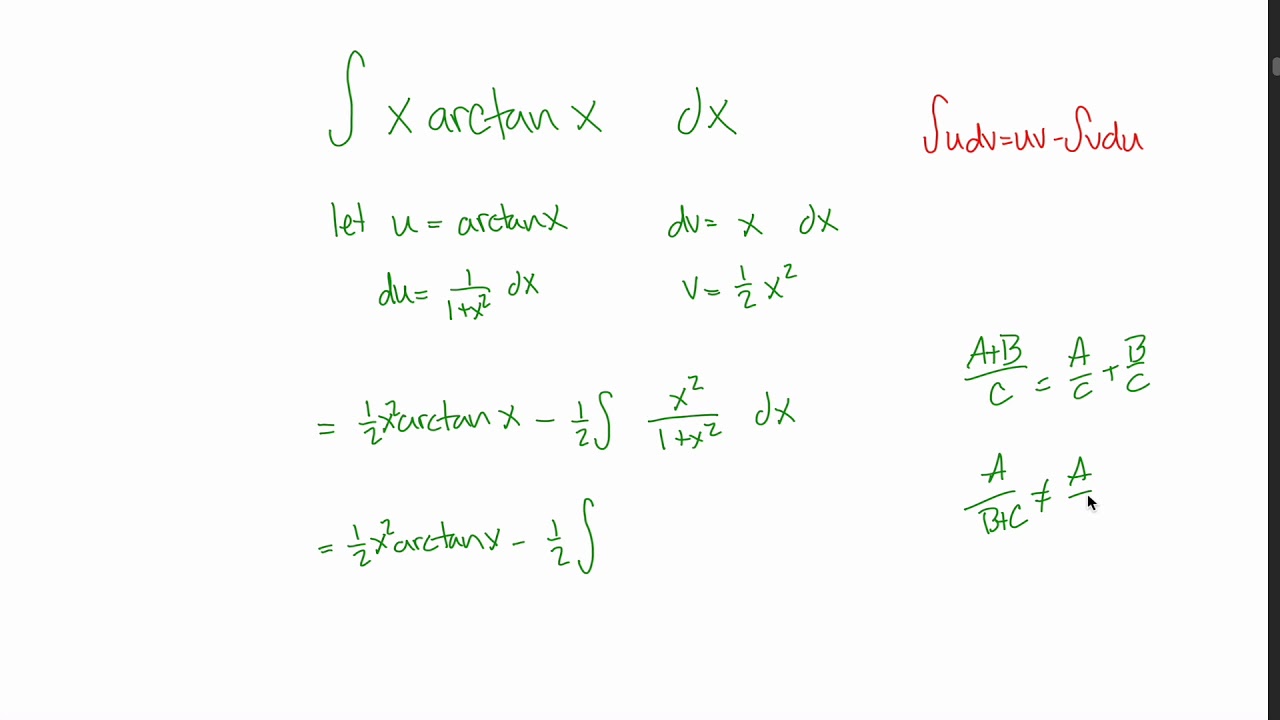 ∫ x arctan x dx
∫udv=uv-∫vdu
let u = arctanx dv= x dx
du= 1/(1+x²) dx v= 1/2 x²
= 1/2 x² arctan x - 1/2 ∫ x²/(1+x²) dx
(A+B)/C = A/C + B/C
A/(B+C) ≠ A/
= 1/2 x² arctanx - 1/2 ∫